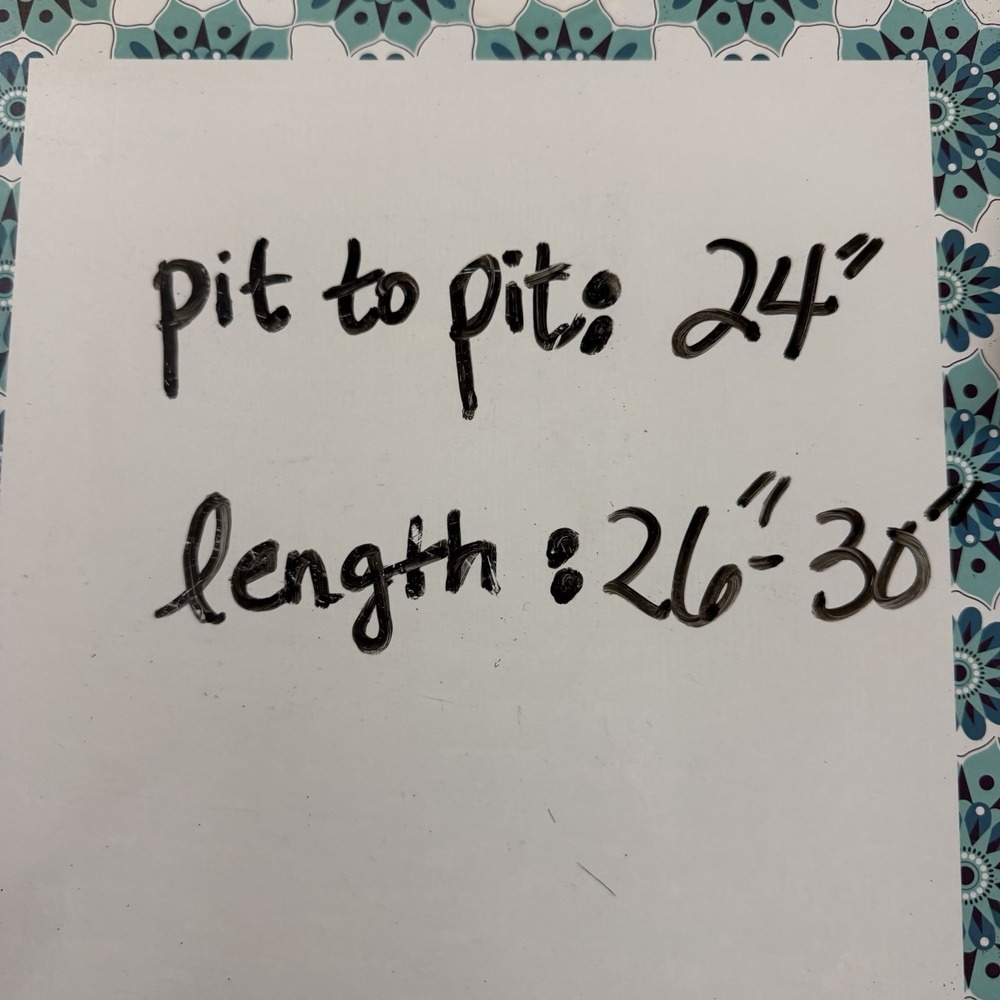 pit to pit: 24"
length : 26"- 30"